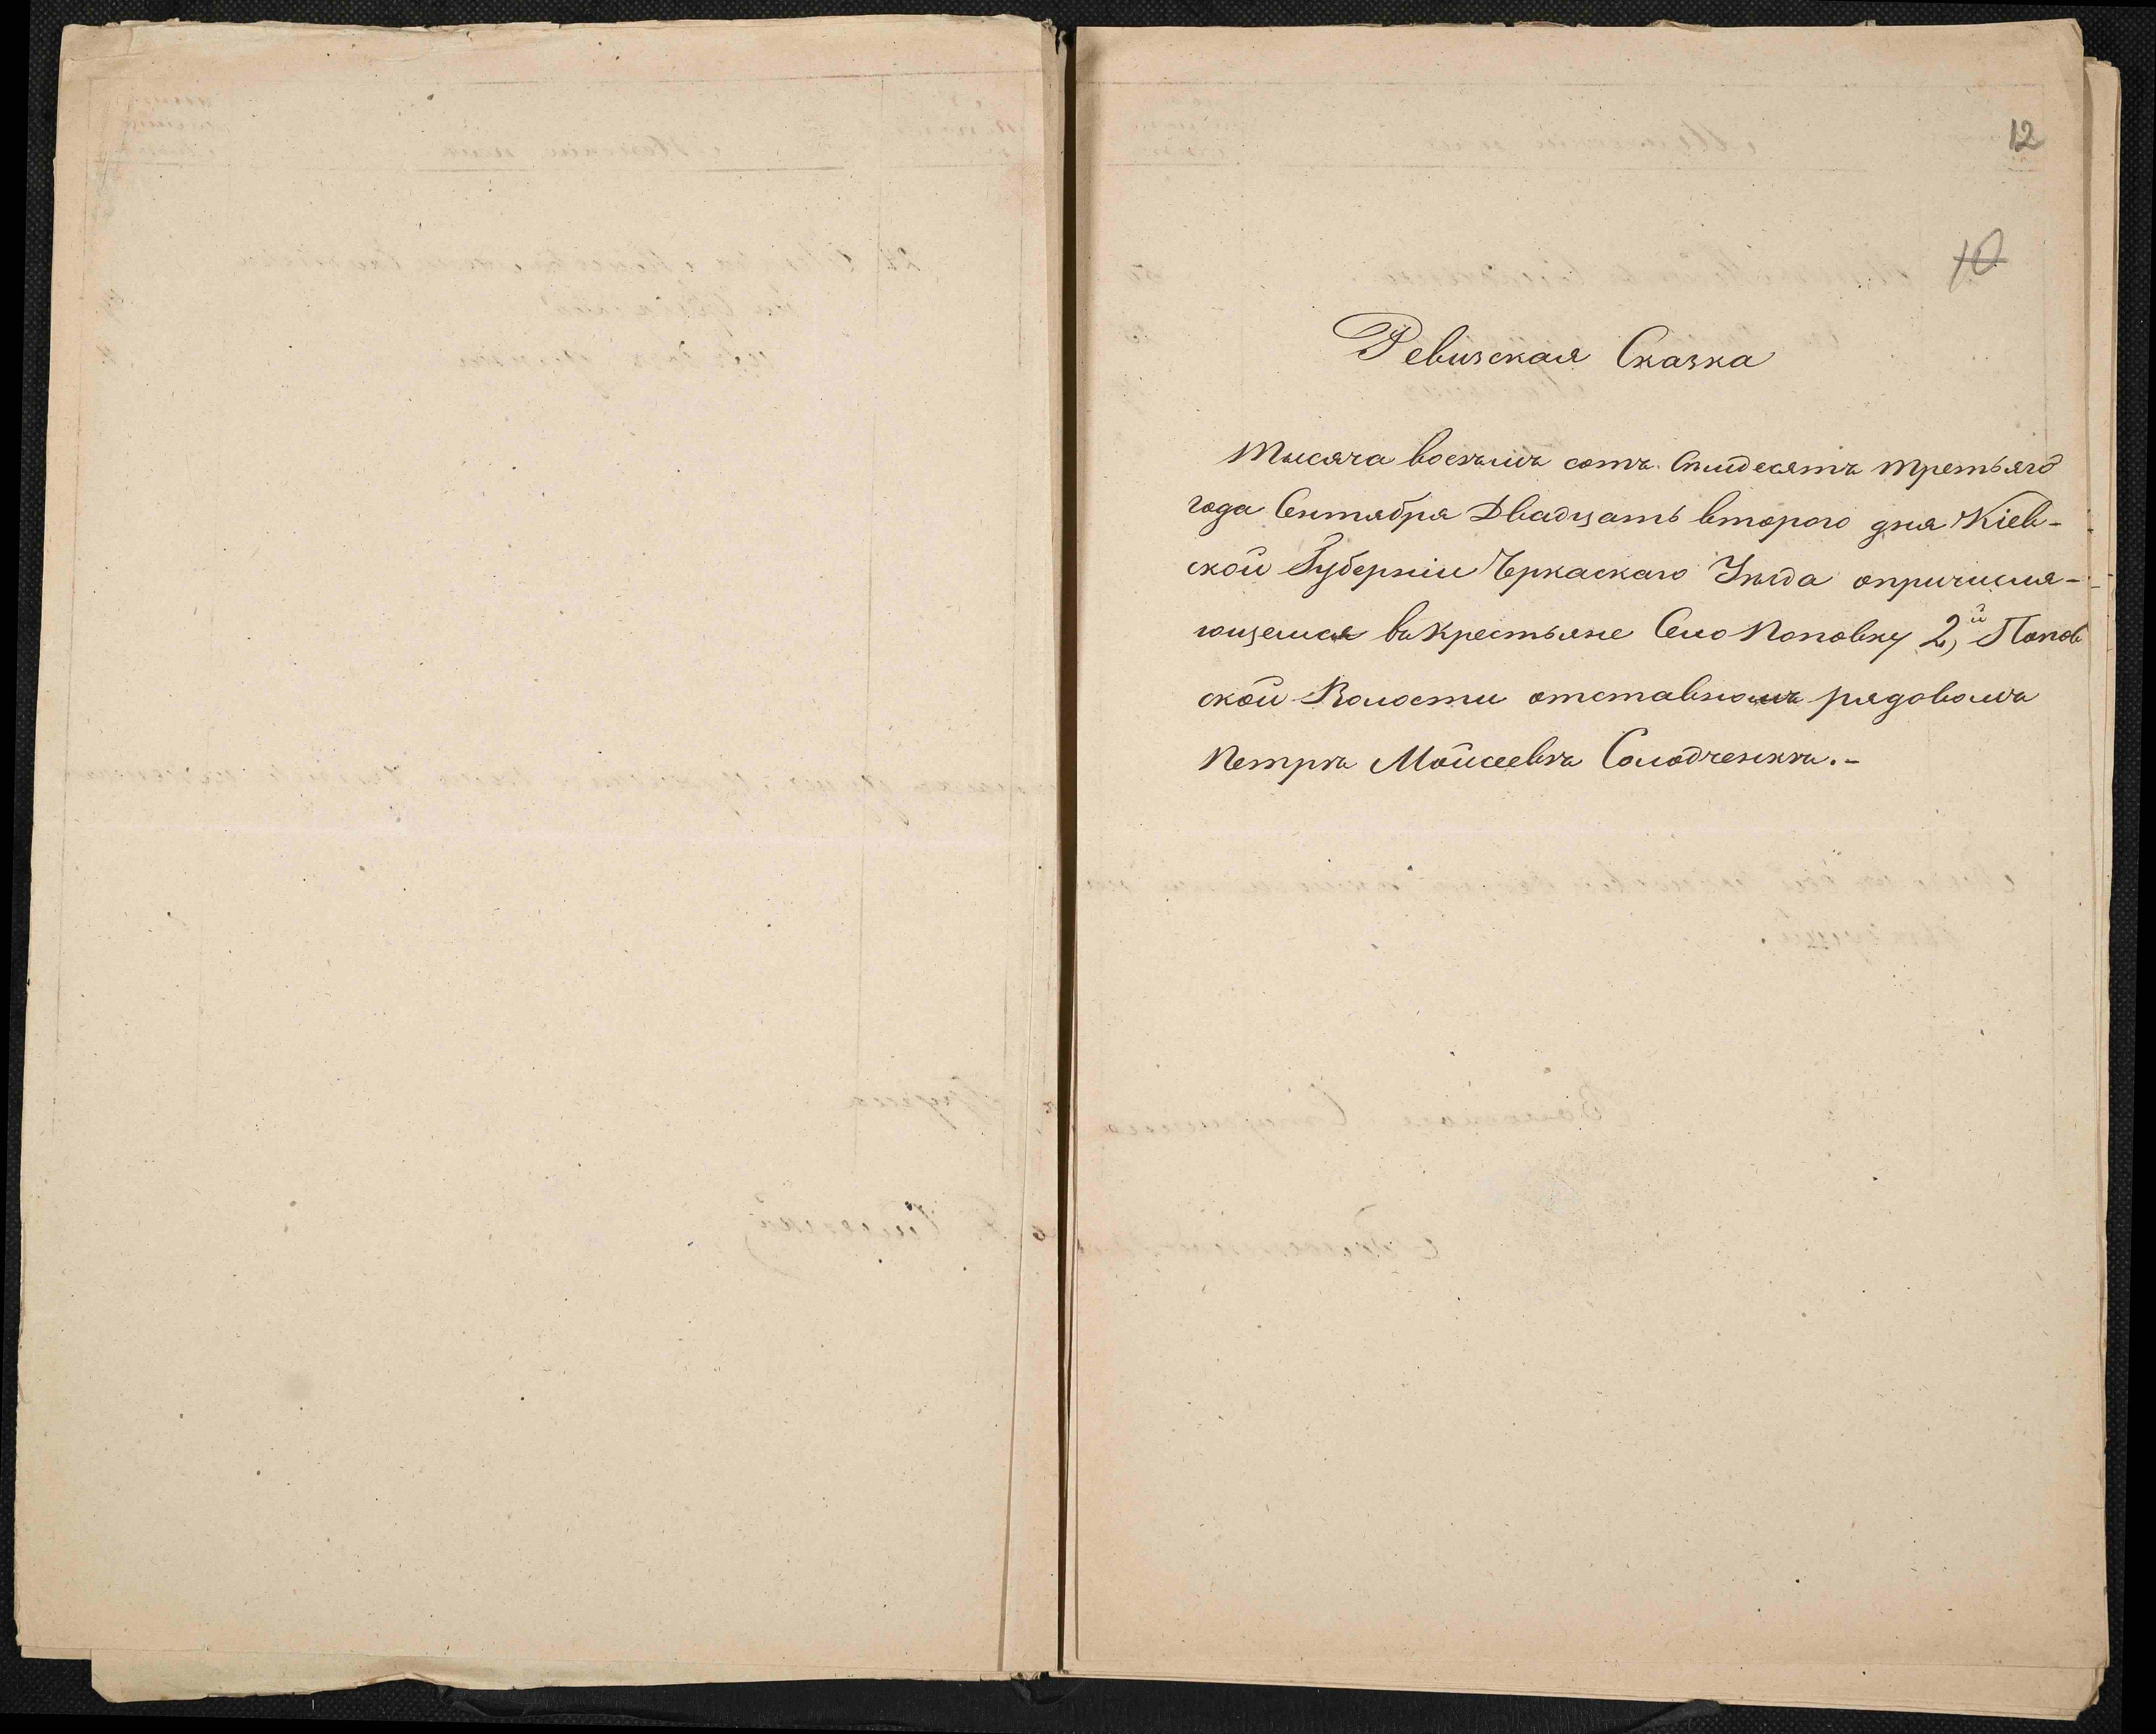 12
10
Ревизская Сказка
Тысяча восемь сотъ Смидесятъ третьяго
года Сентября Двадцать второго дня Кіев-
ской Губерніи Черкаскаго Уѣзда опричисля-
ющемся въ Крестьяне Село Поповку 2,й Попов
ской Волости отставномъ рядовомъ
Петрѣ Мойсеевѣ Солодченкѣ.-